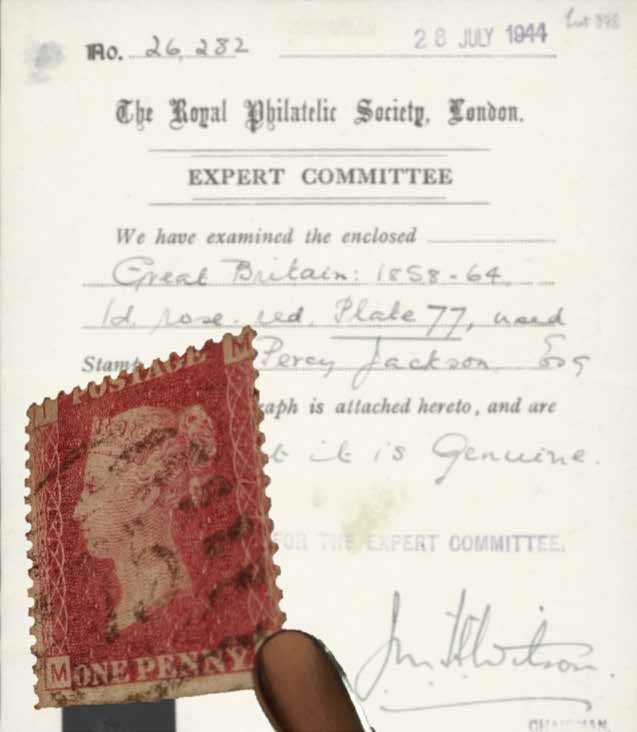 No. 26,282 28 JULY 1944 Lot 898
The Royal Philatelic Society, London.
EXPERT COMMITTEE
We have examined the enclosed
Great Britain: 1858-64,
1d. rose-red, Plate 77, used
Stamp Percy Jackson, Esq
raph is attached hereto, and are
t it is Genuine.
FOR THE EXPERT COMMITTEE.
CHAIRMAN.
POSTAGE
M ONE PENNY.